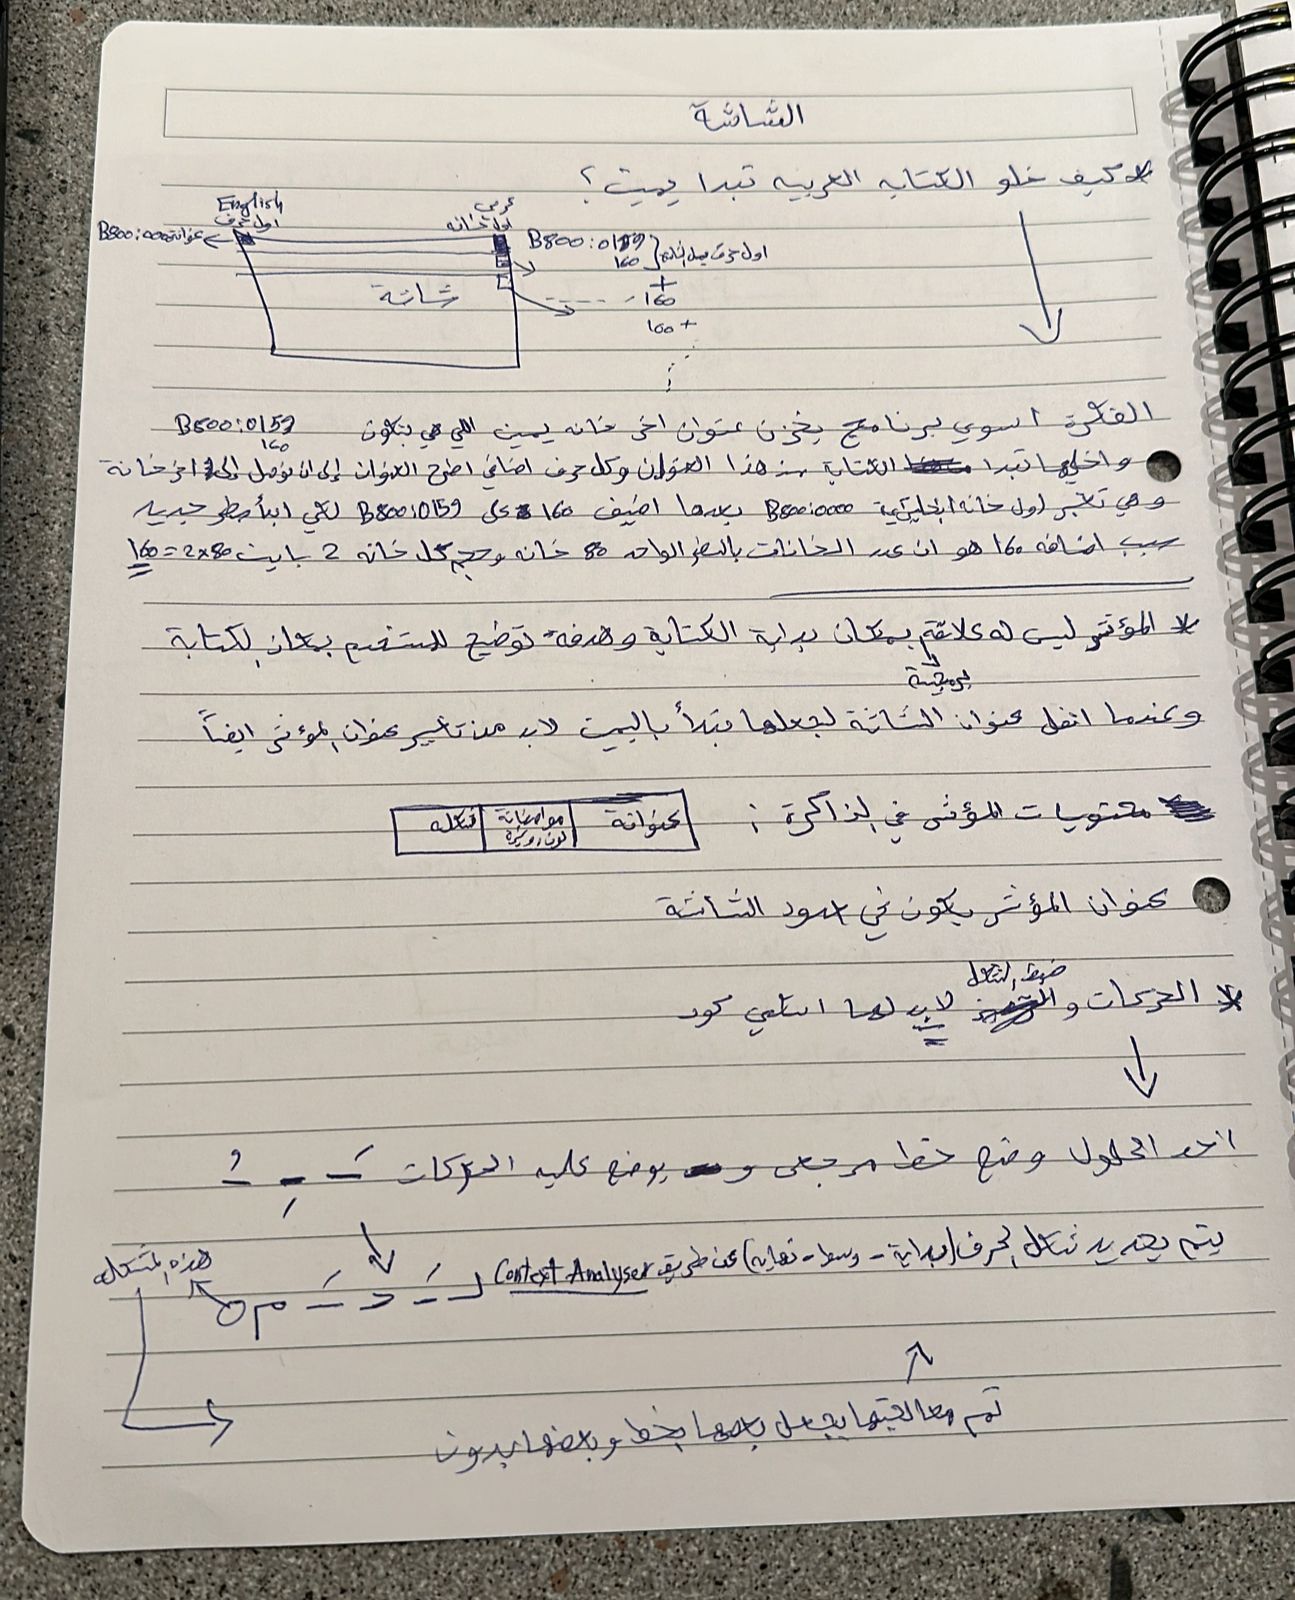 الشاشة
* كيف خلو الكتابه العربيه تبدا يمين ؟
English
اول حرف
عنوانه B800:0000
عربي
اول خانه
B800:0159
160
اول حرف
+
160
160 +
شاشة
الفكرة اسوي برنامج يخزن عنوان اخر خانه يمين اللي هي بتكون B800:0159
160
واخليها تبدا الكتابة من هذا العنوان وكل حرف اضافي اطرح العنوان إلى ان نوصل إلى اخر خانة
وهي تعتبر اول خانه انجليزي B800:0000 بعدها اضيف 160 على B800:0159 لكي ابدأ سطر جديد
سبب اضافه 160 هو ان عدد الخانات بالسطر الواحد 80 خانه وحجم كل خانه 2 بايت 80×2=160
* المؤشر ليس له علاقة بمكان بداية الكتابة وهدفه توضيح للمستخدم بمكان الكتابة
برمجية
وعندما انقل عنوان الشاشة لجعلها تبدأ باليمين لابد من تغيير عنوان المؤشر ايضاً
محتويات المؤشر في الذاكرة :
عنوانة
مواصفاتة
لون، وميزة
شكله
عنوان المؤشر يكون في حدود الشاشة
ضبط الشكل
* الحركات و لابد لها اسكي كود
احد الحلول وضع خط مرجعي و يوضع عليه الحركات ـَ ـِ ـُ
يتم تحديد شكل الحرف (بداية - وسط - نهايه) عن طريق Context Analyser
هذه المشكلة
تم معالجتها بجعل بعضها بخط وبعضها بدون